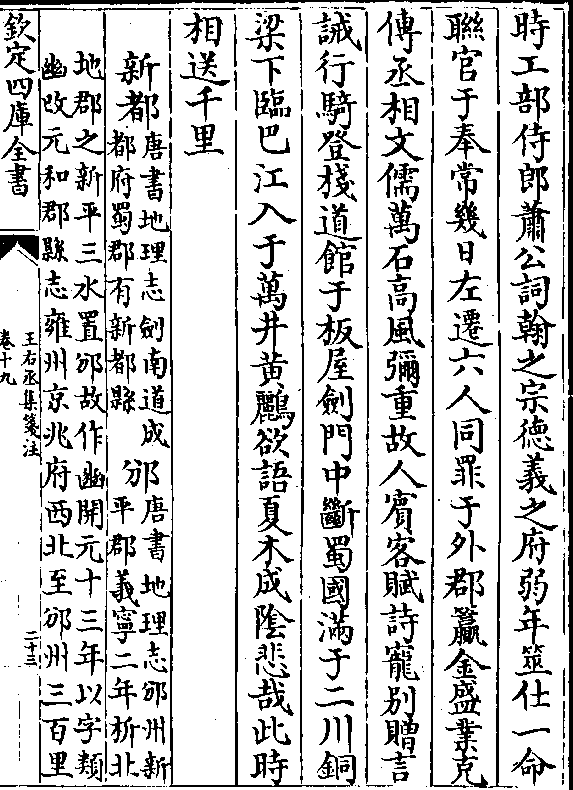 時工部侍郎蕭公詞翰之宗德義之府弱年筮仕一命
聯官于奉常幾日左遷六人同罪于外郡籯金盛業克
傳丞相文儒萬石高風彌重故人賓客賦詩寵別贈言
誡行騎登棧道館于板屋劍門中斷蜀國滿于二川銅
梁下臨巴江入于萬井黄鸝欲語夏木成陰悲哉此時
相送千里
新都唐書地理志劍南道成都府蜀郡有新都縣 邠唐書地理志邠州新平郡義寧二年析北
地郡之新平三水置邠故作豳開元十三年以字類
豳改元和郡縣志雍州京兆府西北至邠州三百里
欽定四庫全書
王右丞集箋注
卷十九
二十三